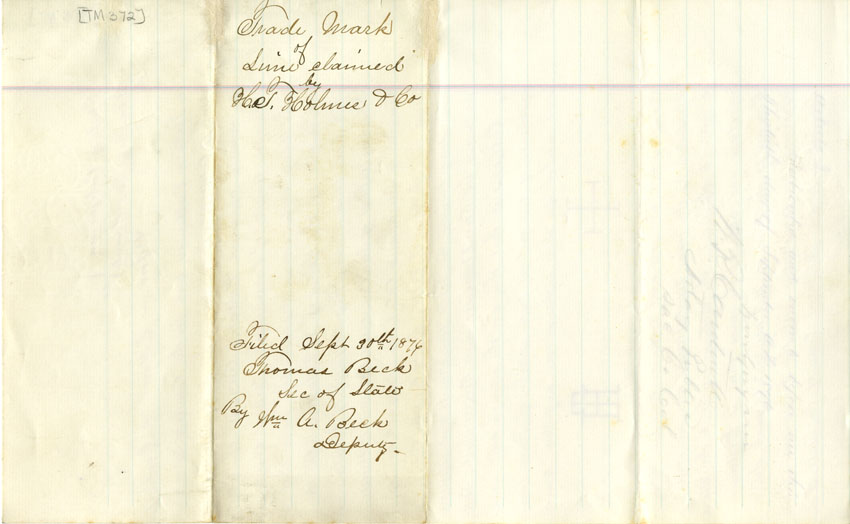 [TM 372]
Trade Mark
of
Lime claimed
by
H.T. Holmes & Co
Filed Sept 30th 1876
Thomas Beck
Sec of State
By Wm A. Beck
Deputy